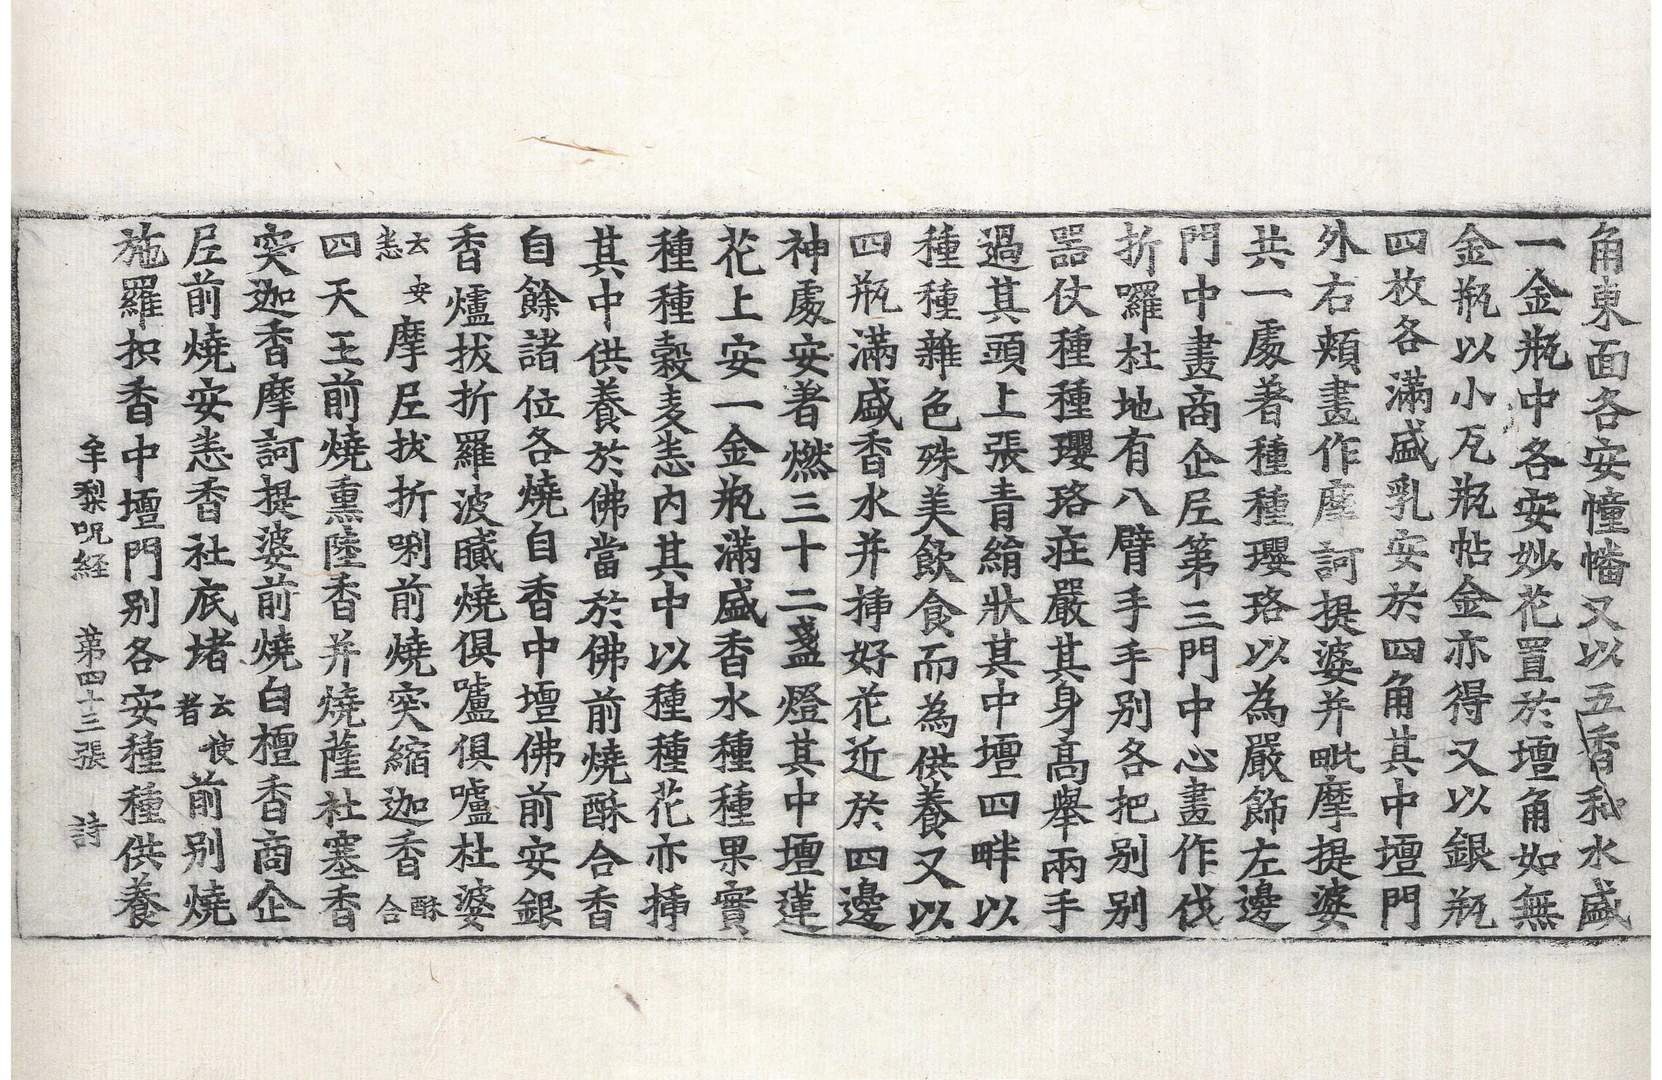 角東面各安幢幡又以五香和水盛
一金瓶中各安妙花置於壇角如無
金瓶以小瓦瓶帖金亦得又以銀瓶
四枚各滿盛乳安於四角其中壇門
外右頰畫作摩訶提婆并毗摩提婆
共一處著種種瓔珞以為嚴飾左邊
門中畫商企𡰱第三門中心畫作伐
折囉杜地有八臂手手別各把別別
器仗種種瓔珞莊嚴其身高舉兩手
過其頭上張青絹狀其中壇四畔以
種種雜色殊美飲食而為供養又以
四瓶滿盛香水并揷好花近於四邊
神處安著燃三十二盞燈其中壇蓮
花上安一金瓶滿盛香水種種果實
種種穀麦恚內其中以種種花亦揷
其中供養於佛當於佛前燒酥合香
自餘諸位各燒自香中壇佛前安銀
香爐拔折羅波膩燒俱嚧俱嚧杜婆
云安恚摩𡰱拔折唎前燒突縮迦香酥合
四天王前燒熏陸香并燒薩社塞香
突迦香摩訶提婆前燒白檀香商企
𡰱前燒安恚香社底堵云使者前別燒
施羅抧香中壇門別各安種種供養
牟梨呪経 第四十三張 詩